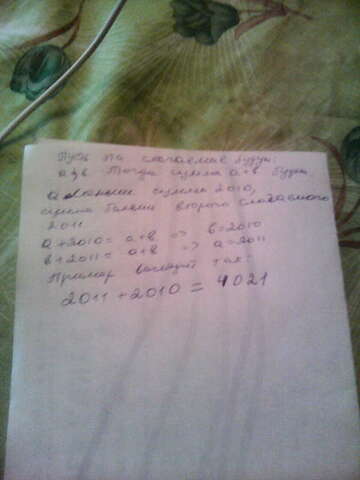 Пусть слагаемые будут:
a, b. Тогда сумма a+b будет
а сумма 2010,
сумма больше второго слагаемого
2011
a+2010=a+b => b=2010
b+2011=a+b => a=2011
Пример выглядит так:
2011+2010=4021